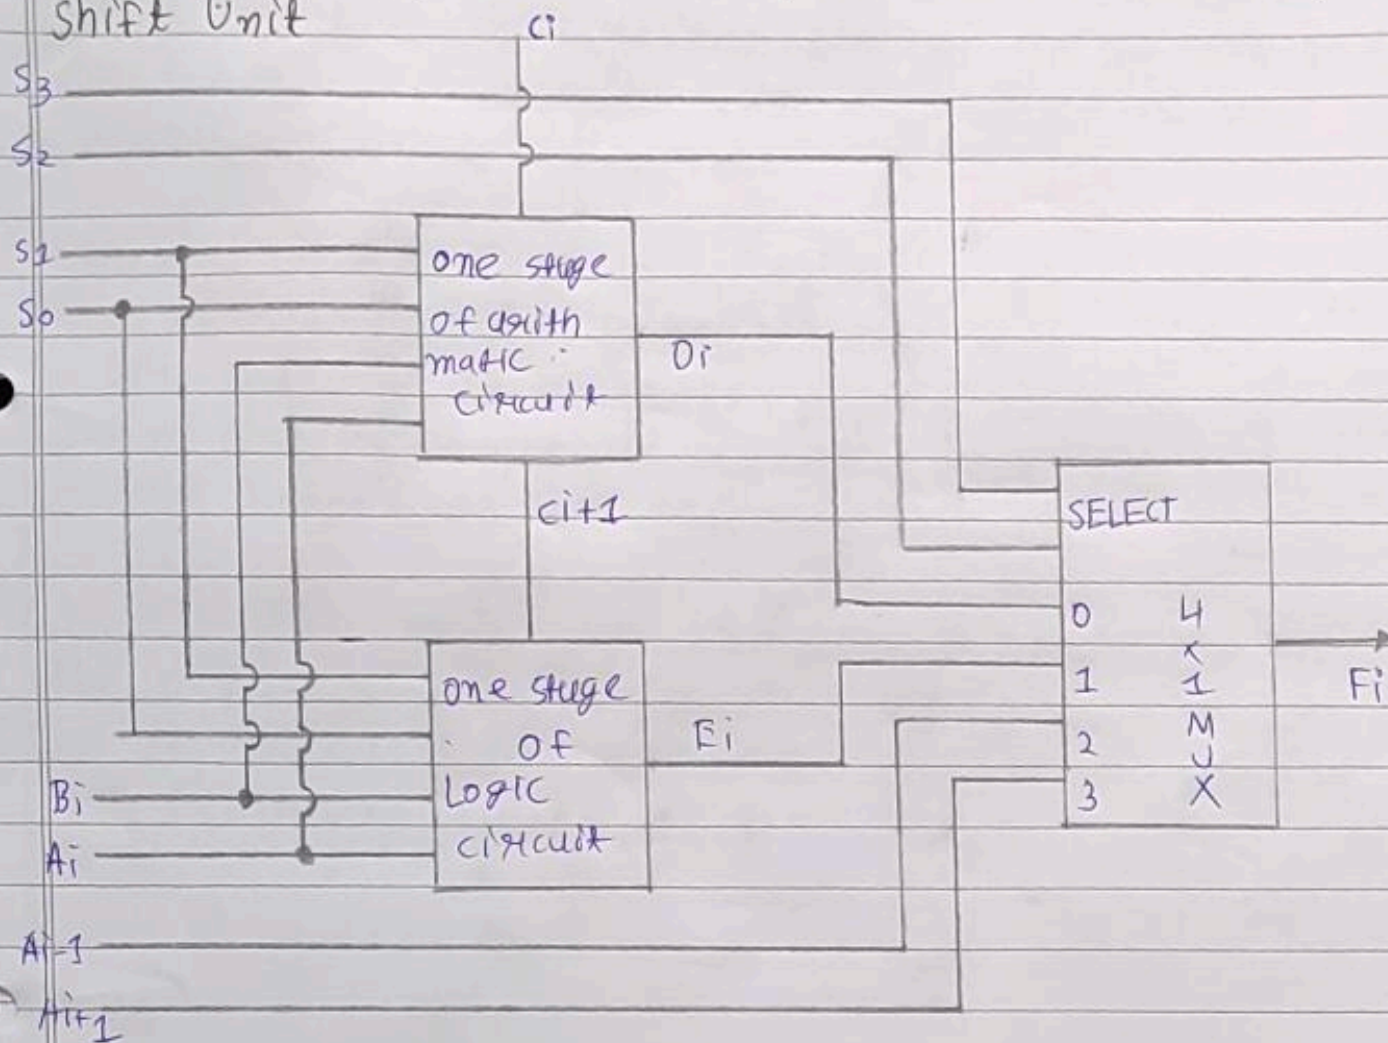 Shift Unit
Ci
S3
S2
S1
S0
one stage
of arith
matic
circuit
Di
Ci+1
SELECT
0
1
2
3
4
x
1
M
U
X
Fi
one stage
of
Logic
circuit
Ei
Bi
Ai
Ai-1
Ai+1